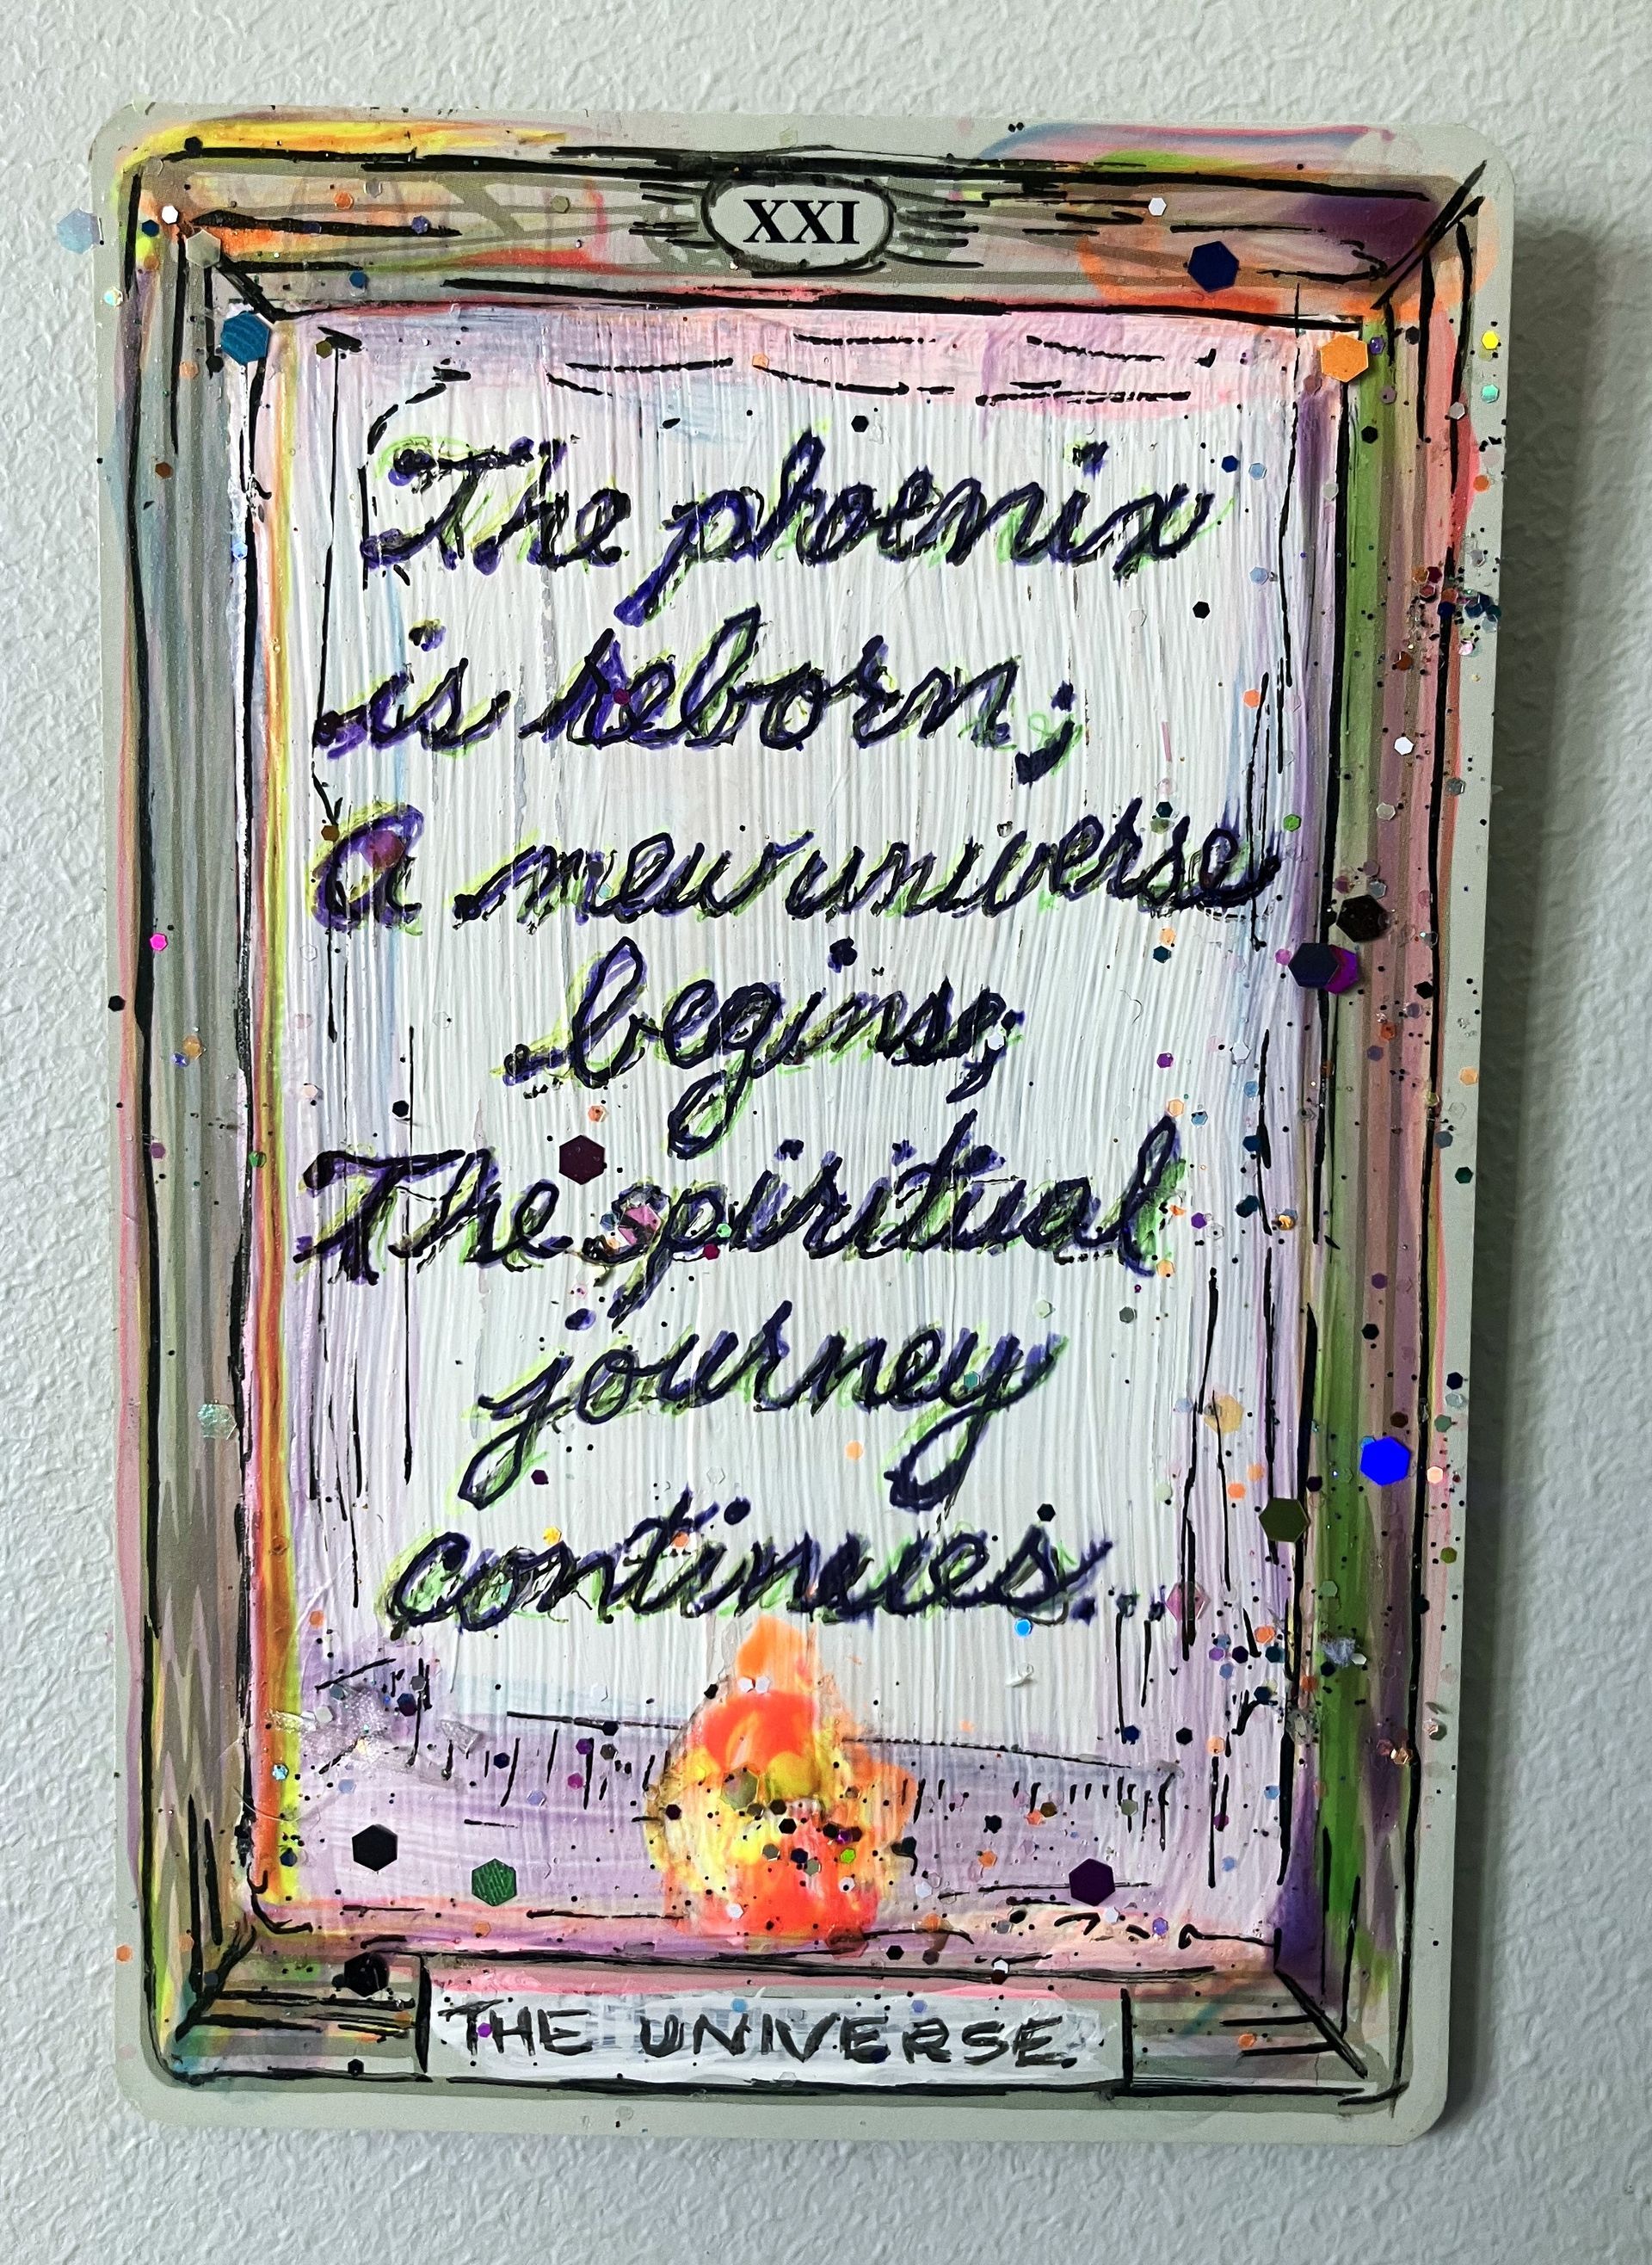 XXI
The phoenix
is reborn;
a new universe
begins;
The spiritual
journey
continues...
THE UNIVERSE